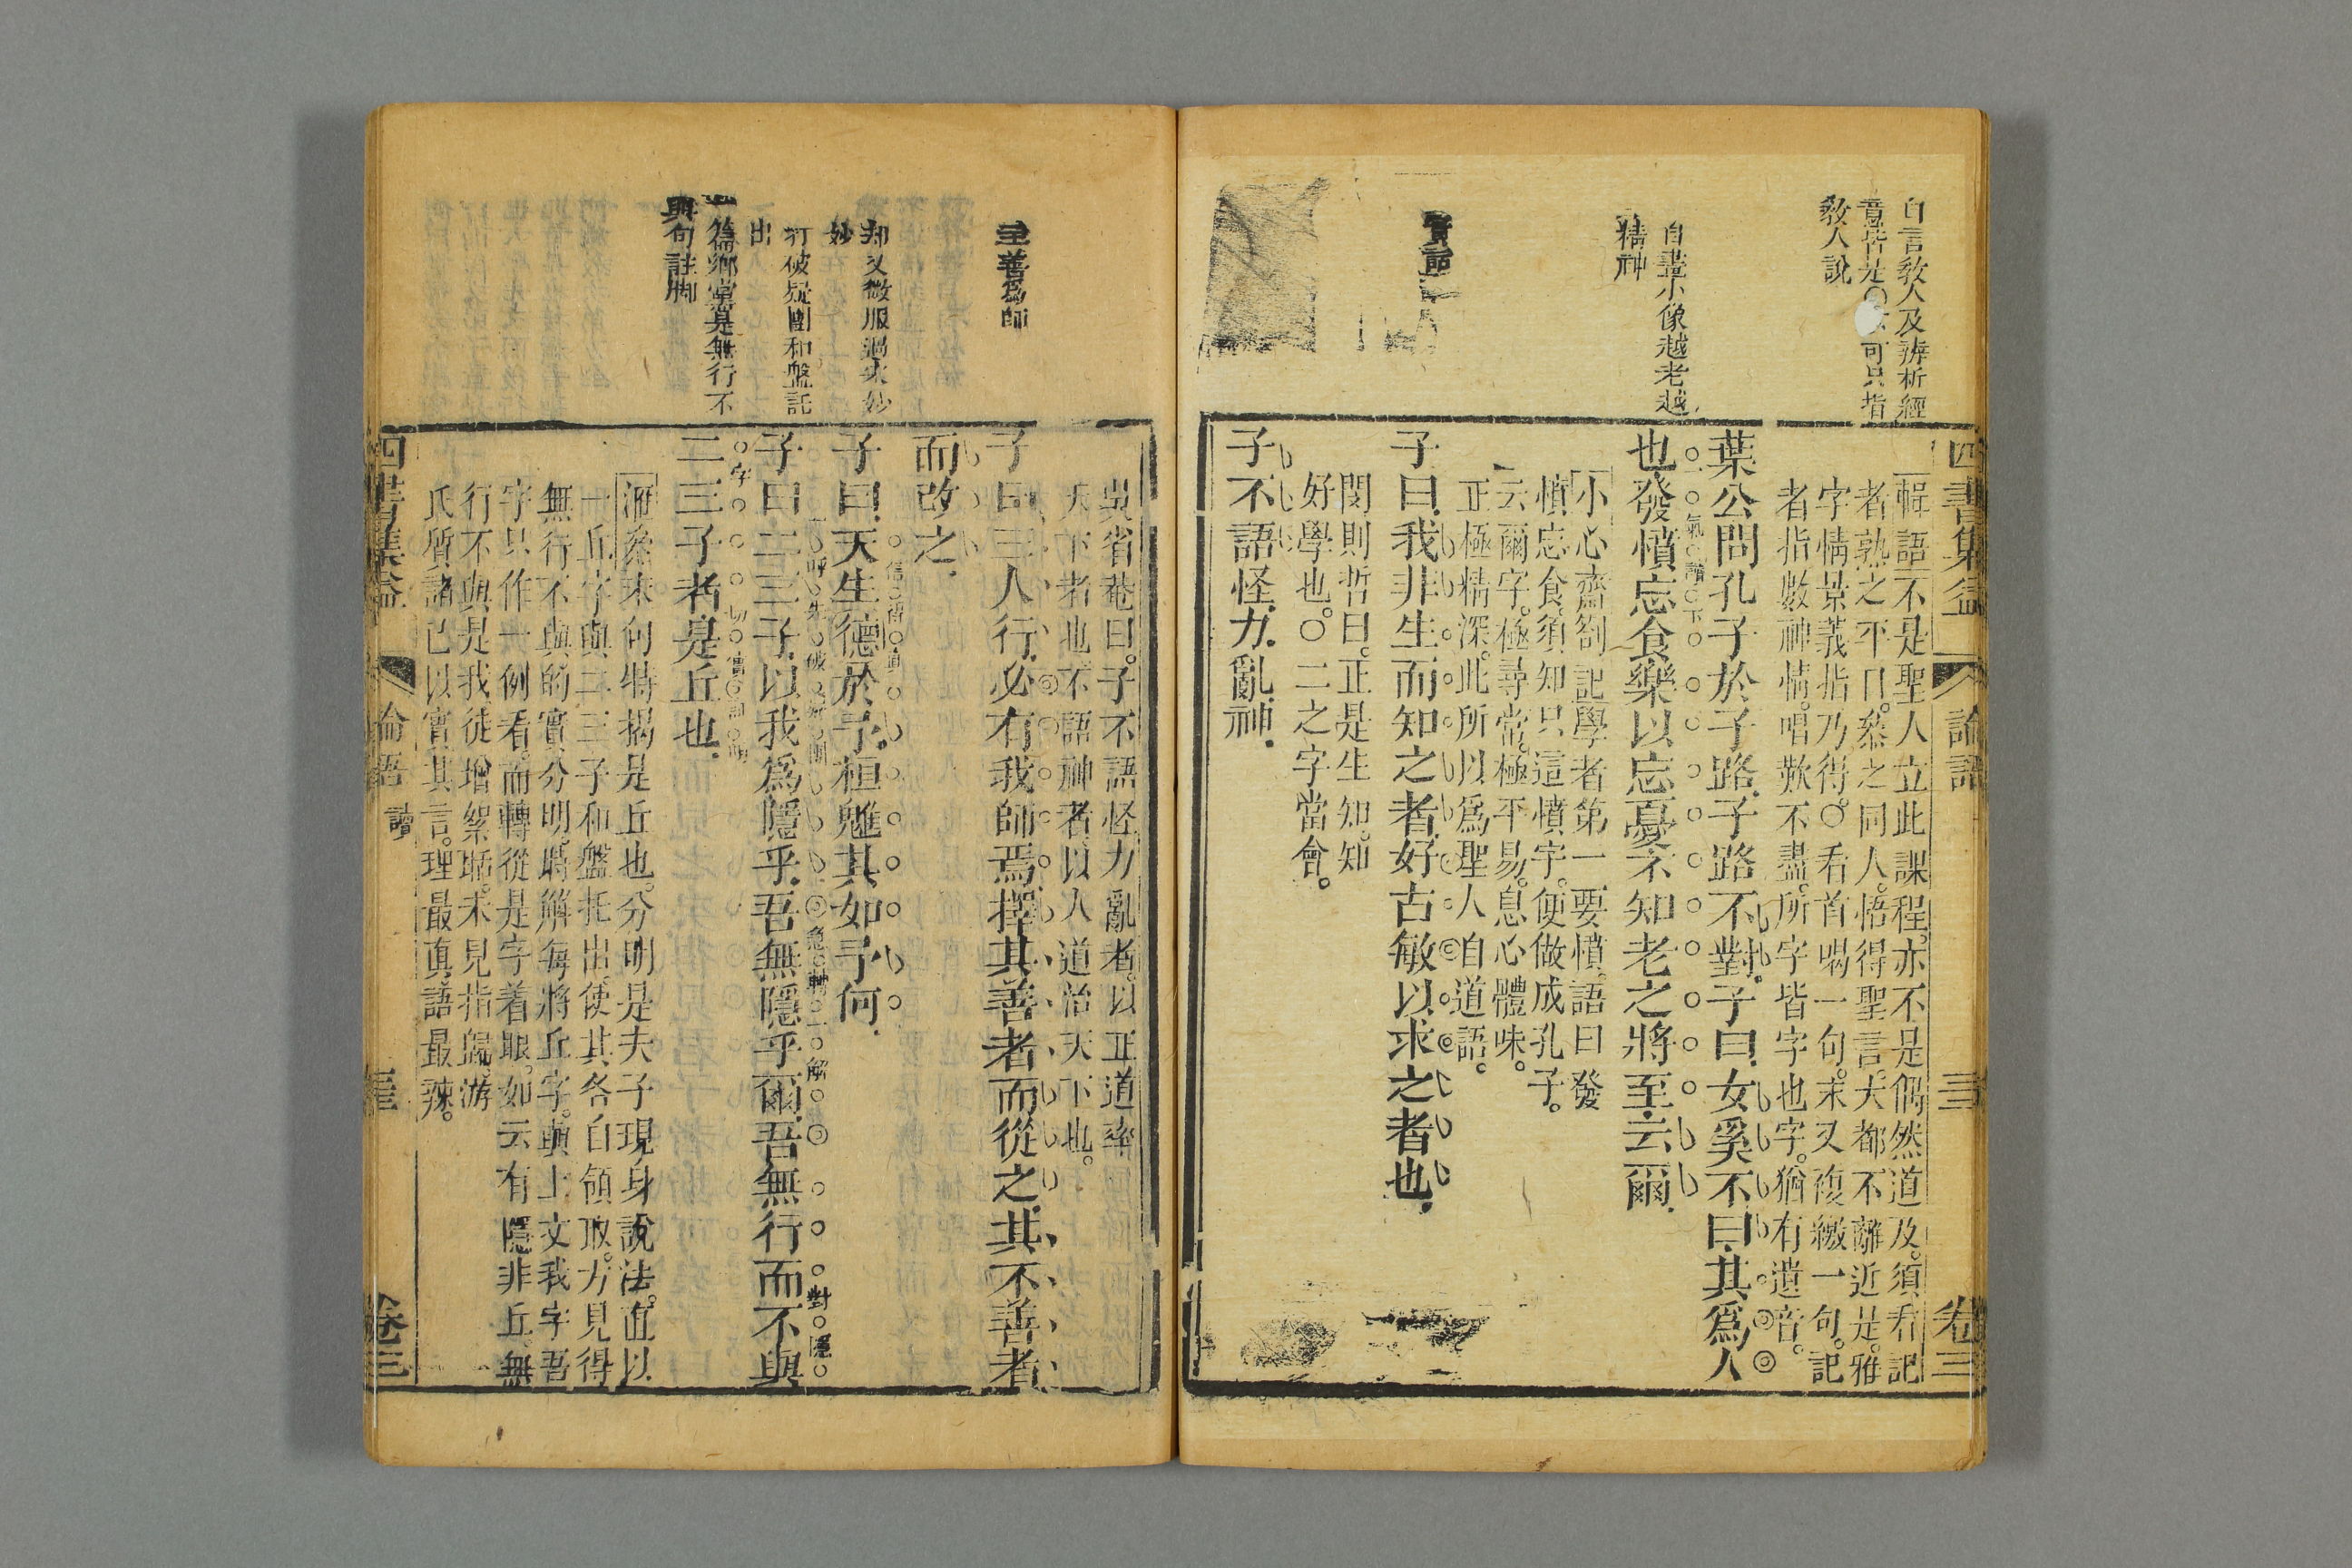 四書集益 論語 卷三
自言教人及辨析經
意皆是○可只指
教人說
自畫小像越老越
精神
實證
輯語不是聖人立此課程亦不是偶然道及須看記
者熟之平日叅之同人悟得聖言大都不離近是雅
字情景義指乃得○看首喝一句末又複繳一句記
者指數神情唱歎不盡所字皆字也字猶有遺音
葉公問孔子於子路子路不對子曰女奚不曰其爲人
也發憤忘食樂以忘憂不知老之將至云爾
氣 讀 下
小心齋劄記學者第一要憤語曰發
憤忘食須知只這憤字便做成孔子
云爾字極尋常極平易息心體味
正極精深此所以爲聖人自道語
子曰我非生而知之者好古敏以求之者也
閔則哲曰正是生知知
好學也○二之字當會
子不語怪力亂神
主善爲師
却又微服過宋妙
妙
打破疑團和盤託
出
一篇鄉黨是無行不
與句註脚
吳省菴曰子不語怪力亂者以正道率
天下者也不語神者以人道治天下也
子曰三人行必有我師焉擇其善者而從之其不善者
而改之
子曰天生德於予桓魋其如予何
子曰二三子以我爲隱乎吾無隱乎爾吾無行而不與
二三子者是丘也
滙叅末句特揭是丘也分明是夫子現身說法直以
一丘字與二三子和盤托出使其各自領取方見得
無行不與的實分明時解每將丘字與上文我字吾
字只作一例看而轉從是字着眼如云有隱非丘無
行不與是我徒增絮聒未見指歸游
氏質諸己以實其言理最真語最辣
四書集益 論語 卷三